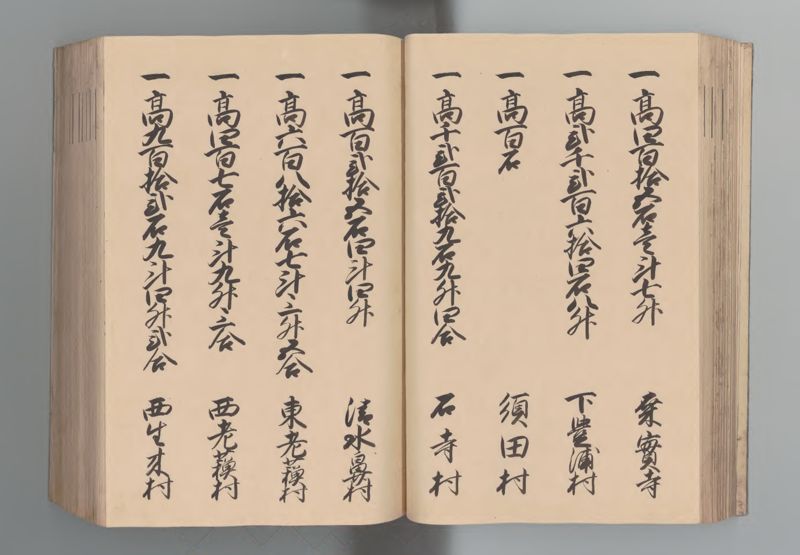 一高四百拾五石壱斗七升 桑實寺
一高弐千弐百六拾四石八升 下豊浦村
一高百石 須田村
一高千弐百弐拾九石九升四合 石寺村
一高百弐拾五石四斗四升 清水鼻村
一高六百八拾六石七斗三升五合 東老蘓村
一高四百七石壱斗九升三合 西老蘓村
一高九百拾弐石九斗四升弐合 西生来村